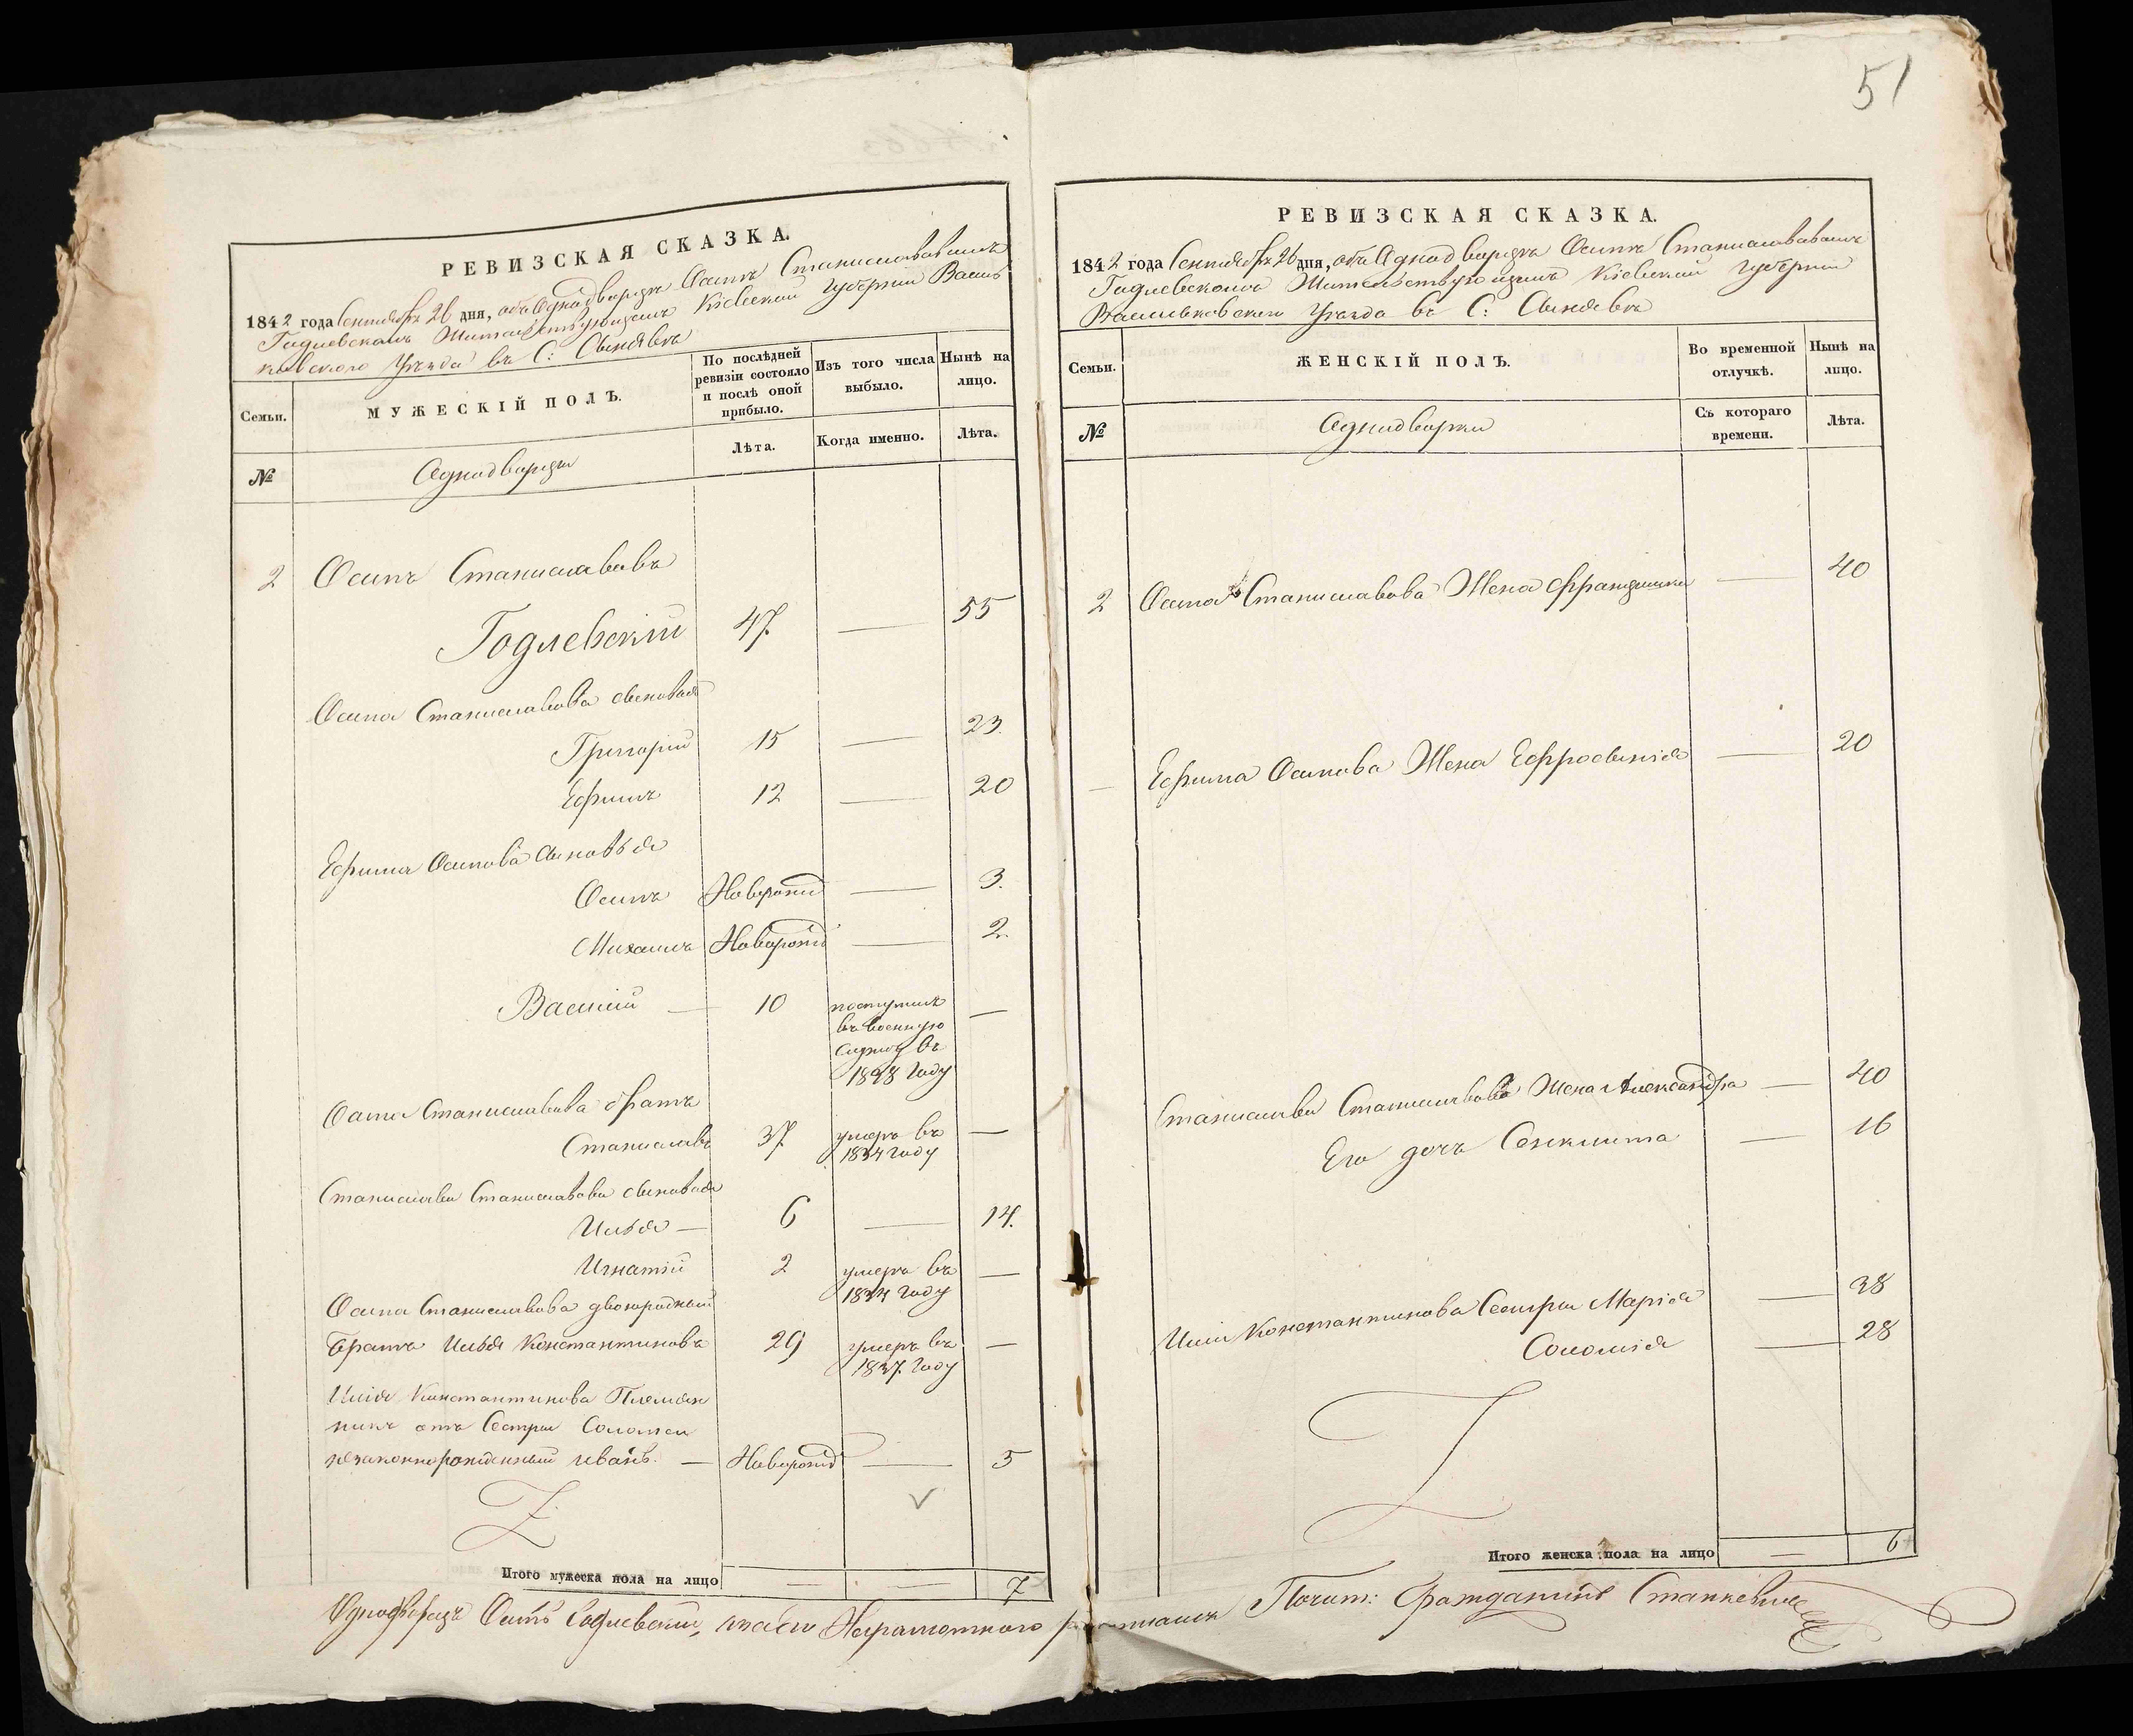 51
РЕВИЗСКАЯ СКАЗКА.
1842 года Сентября 26 дня, объ Однодворце Осипе Станиславовиче
Годлевскомъ Жительствующемъ Кіевской губерніи Василь
ковского Уезда въ С:
Семьи.
МУЖЕСКІЙ ПОЛЪ.
По послѣдней ревизіи состояло и послѣ оной прибыло.
Изъ того числа выбыло.
Нынѣ на лицо.
№
Однодворцы
Лѣта.
Когда именно.
Лѣта.
2 Осипъ Станиславовъ
Годлевскій 47. — 55
Осипа Станиславова сыновья
Григорий 15 — 23.
Ефимъ 12 — 20
Ефима Осипова сыновья
Осипъ Новорожд — 3.
Михаилъ Новорожд — 2.
Василий — 10 поступилъ —
въ военную
службу въ
1838 году
Осипа Станиславова братъ
Станиславъ 37. умеръ въ —
1834 году
Станислава Станиславова сыновья
Илья — 6 — 14.
Игнатій 2 умеръ въ —
1834 году
Осипа Станиславова двоюродный
Братъ Илья Константиновъ 29 умеръ въ —
1837. году
Иліи Константинова Племян
никъ отъ Сестры Соломеи
незаконнорожденный иванъ. — Новорожд — 5
Итого мужеска пола на лицо — — 7
Однодворецъ Осипъ Годлевский, а за его Неграмотного росписался Почет: Гражданинъ Станкевичъ
РЕВИЗСКАЯ СКАЗКА.
1842 года Сентября 26 дня, объ Однодворце Осипе Станиславовиче
Годлевскомъ Жительствующемъ Кіевской губерніи
Васильковского Уезда въ С:
Семьи.
ЖЕНСКІЙ ПОЛЪ.
Во временной отлучкѣ.
Нынѣ на лицо.
№
Однодворки
Съ котораго времени.
Лѣта.
2 Осипа Станиславова Жена Францишка — 40
— Ефима Осипова Жена Ефросинія — 20
Станислава Станиславова Жена Александра — 40
Его дочь — 16
Иліи Константинова Сестры Марія — 38
Соломія — 28
Итого женска пола на лицо — 6